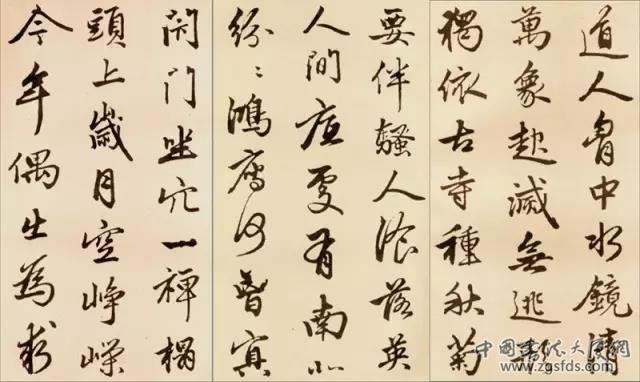 道人胷中水鏡清
萬象起滅無逃形
獨依古寺種秋菊
要伴騷人湌落英
人間底處有南北
紛〻鴻鴈何曾冥
閉門坐穴一禪榻
頭上歲月空崢嶸
今年偶出為求
www.zgsfds.com